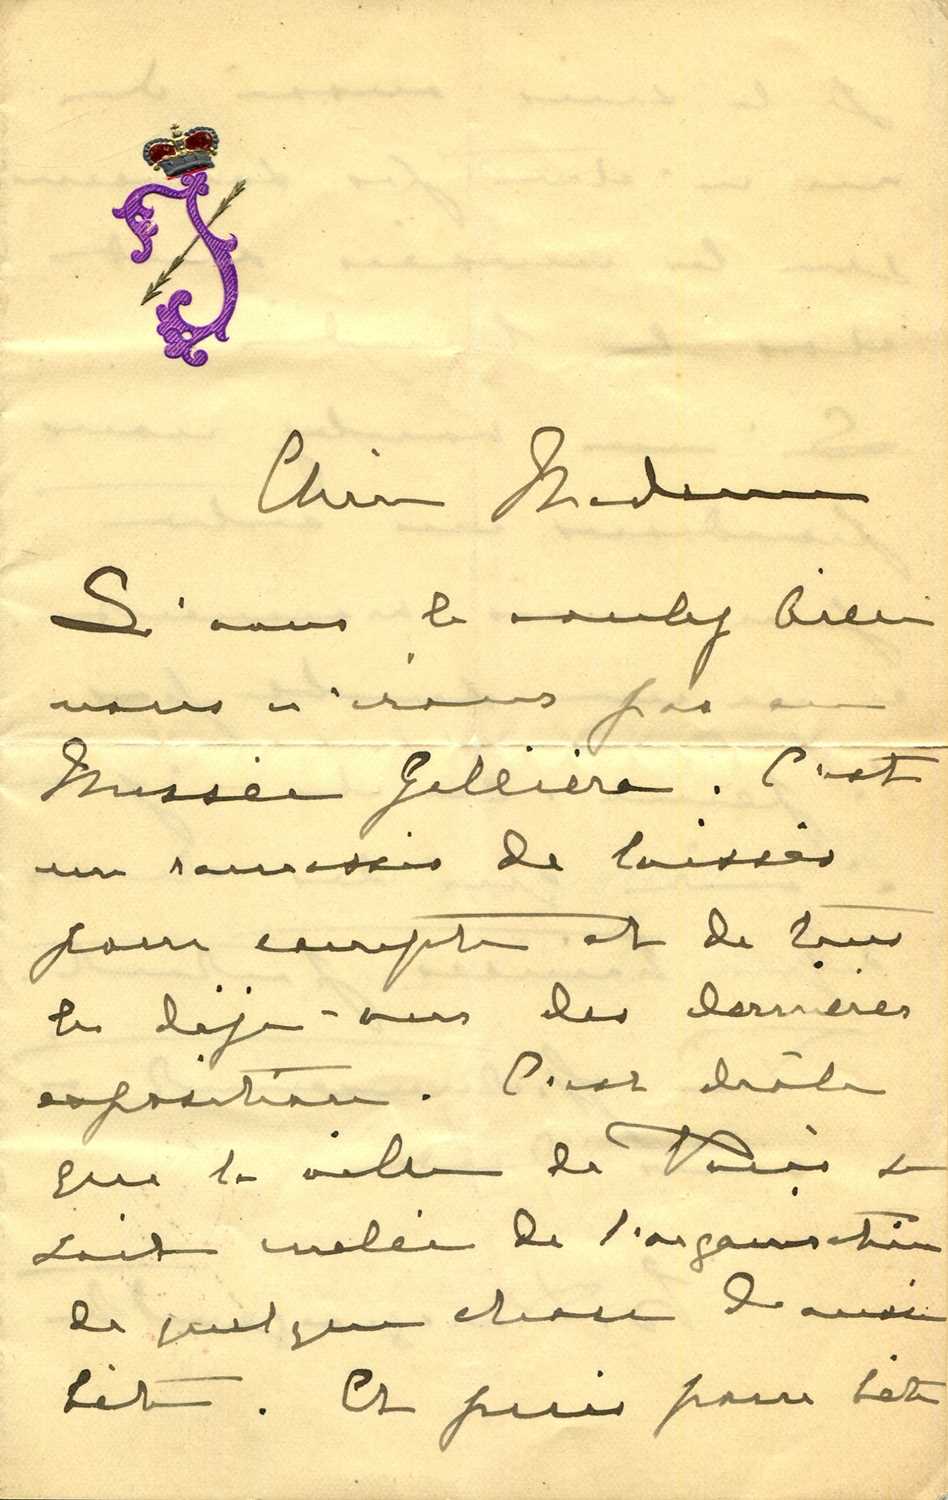 Chère Madame
Si vous le voulez bien
nous n'irons pas au
Musée Galliéra. C'est
un ramassis de laissés
pour compte et de tous
les déjà-vus des dernières
expositions. C'est drôle
que la ville de Paris se
soit mêlée de l'organisation
de quelque chose d'aussi
bête. Et puis pour bête